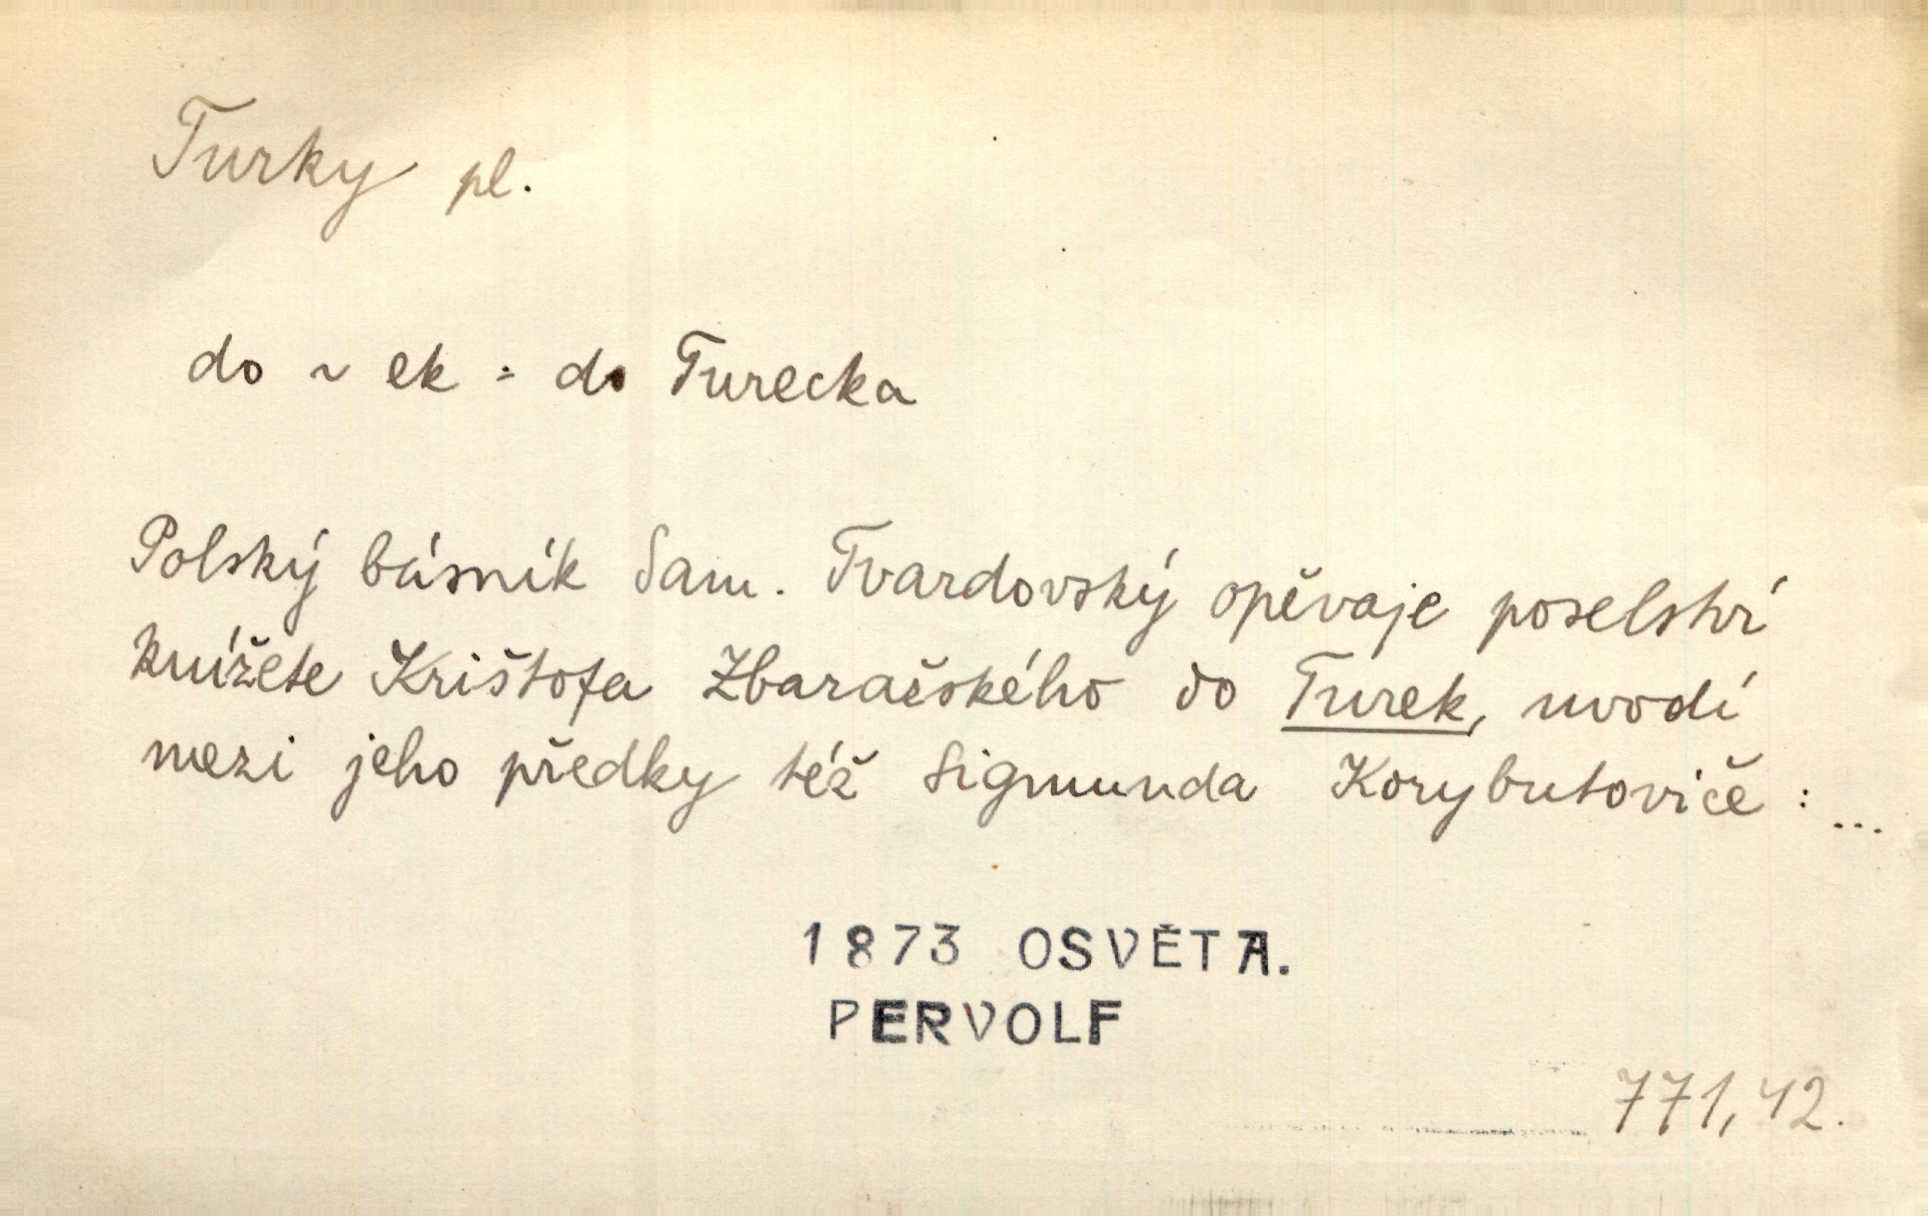 Turky pl.
do ~ ek = do Turecka
Polský básník Sam. Tvardovský opěvaje poselství
knížete Krištofa Zbaračského do Turek, uvodí
mezi jeho předky též Sigmunda Korybutoviče : ...
1873 OSVĚTA.
PERVOLF
771,42.